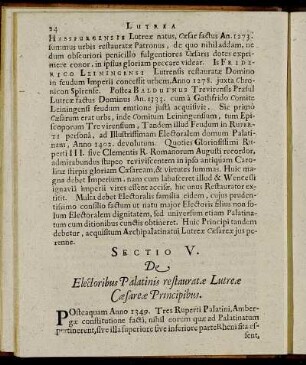 24 LUTREA
HABSPURGENSIS Lutreæ natus, Cæsar factus An. 1273.
summus urbis restauratæ Patronus, de quo nihil addam, ne
dum obscuriori penicillo fulgentiores Cæsaris dotes experi-
mere conor, in ipsius gloriam peccare videar. Is FRIDE-
RICO LEININGENSI Lutrensis restauratæ Domino
in feudum Imperii concessit urbem, Anno 1278. juxta Chro-
nicon Spirense. Postea BALDUINUS Trevirensis Præsul
Lutreæ factus Dominus An. 1333. cum à Gothfrido Comite
Leiningensi feudum emtione justi acquisivit. Sic primò
Cæsarum erat urbs, inde Comitum Leiningensium, tum Epi-
scoporum Trevirensium, Tandem illud Feudum in RUPER-
TI personâ, ad Illustrissimam Electoralem domum Palati-
nam, Anno 1402. devolutum. Quoties Gloriosissimi RU-
PERTI III. sive Clementis R. Romanorum Augusti recordor,
admirabundus stupeo reviviscentem in ipso antiquam Caroli-
næ stirpis gloriam Cæsaream, & virtutes summas. Huic ma-
gna debet Imperium, nam cum labasceret illud & Wenceslai
ignaviâ Imperii vires essent accisæ, hic unus Restaurator ex-
titit. Multa debet Electoralis familia eidem, cujus pruden-
tissimo consilio factum ut natu major Electoris filius non so-
lum Electoralem dignitatem, sed universum etiam Palatina-
tum cum ditionibus cunctis obtineret. Huic Principi tandem
debetur, acquisitum Archipalatinatui Lutreæ Cæsareæ jus pe-
renne.
SECTIO V.
De
Electoribus Palatinis restauratæ Lutreæ
Cæsareæ Principibus.
POstquam Anno 1349. Tres Ruperti Palatini, Amber-
gæ constitutione factâ, nihil eorum quæ ad Palatinatum
pertinerent, sive illa superiore sive inferiore parte Rheni sita es-
sent,